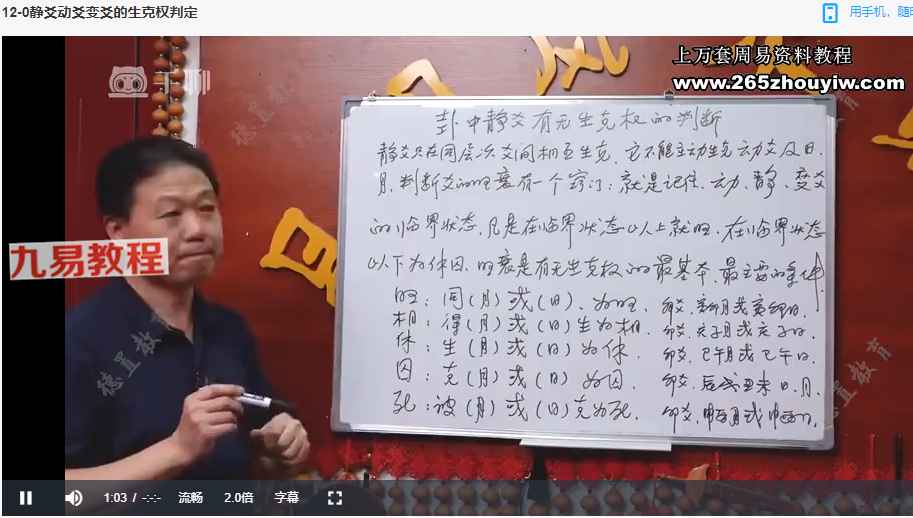 12-0静爻动爻变爻的生克权判定
用手机，随
上万套周易资料教程
www.265zhouyiw.com
卦中静爻有无生克权的判断
静爻只在同层次爻间相互生克，它不能主动生克动爻及日、
月，判断爻的旺衰有一个窍门：就是记住，动、静、变爻
的临界状态，凡是在临界状态以上就旺，在临界状态
以下为休囚，旺衰是有无生克权的最基本，最主要的条件
旺：同(月)或(日)、为旺 卯爻，寅卯月或寅卯日，
相：得(月)或(日)生为相， 卯爻，亥子月或亥子日，
休：生(月)或(日)为休， 卯爻，巳午月或巳午日，
囚：克(月)或(日)为囚， 卯爻，辰戌丑未日、月，
死：被(月)或(日)克为死， 卯爻，申酉月或申酉日，
九易教程
德置教育
德置教育
德置教育
1:03 / -:-:- 流畅 2.0倍 字幕